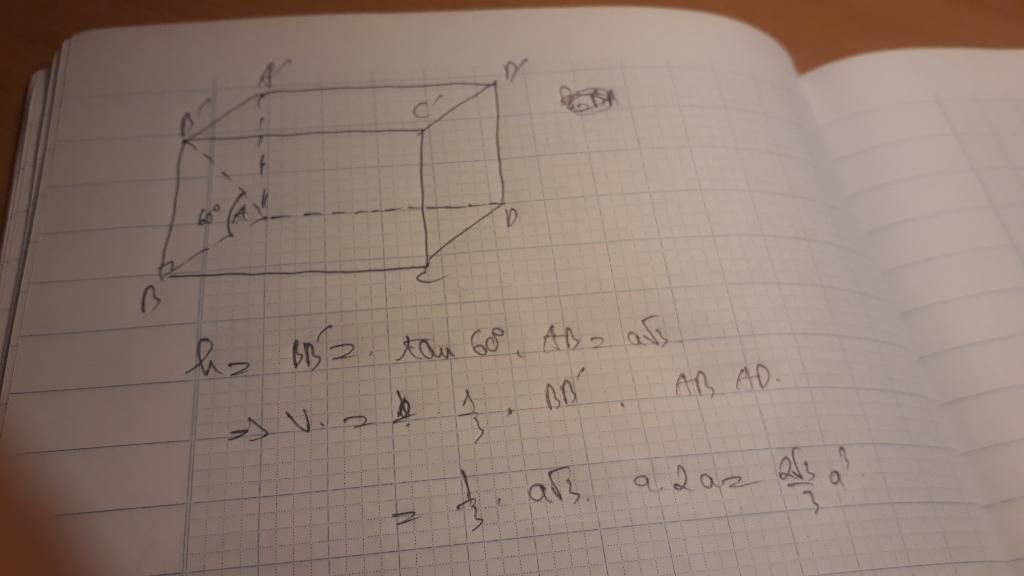 A' D'
B' C'
60° A
D
B C
h = BB' = . tan 60° . AB = a√3
=> V. = 1/3 . BB' . AB AD.
= 1/3 . a√3 . a.2a = 2√3/3 a³.